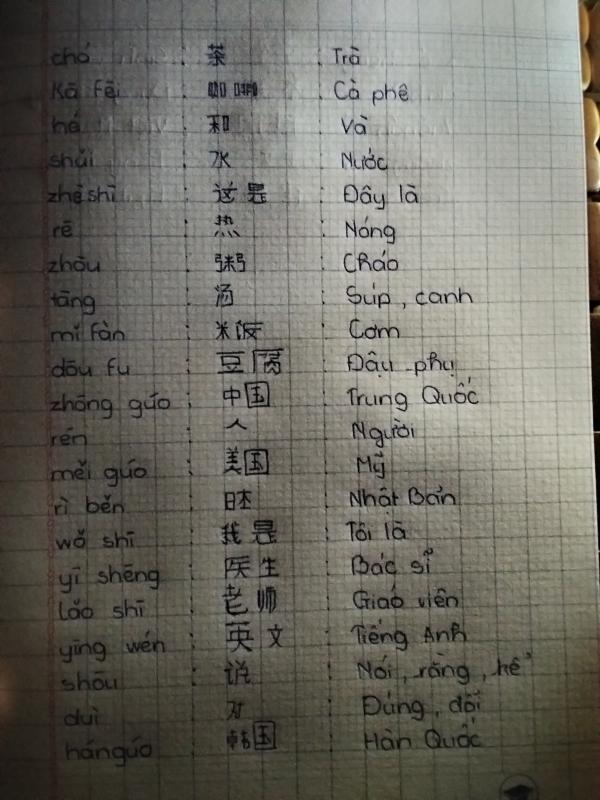 chá : 茶 : Trà
Kā fēi : 咖啡 : Cà phê
hé : 和 : Và
shuǐ : 水 : Nước
zhè shī : 这是 : Đây là
rē : 热 : Nóng
zhōu : 粥 : Cháo
tāng : 汤 : Súp, canh
mǐ fàn : 米饭 : Cơm
dōu fu : 豆腐 : Đậu phụ
zhōng gúo : 中国 : Trung Quốc
rén : 人 : Người
měi gúo : 美国 : Mỹ
rì běn : 日本 : Nhật Bản
wǒ shī : 我是 : Tôi là
yī shēng : 医生 : Bác sĩ
lǎo shī : 老师 : Giáo viên
yīng wén : 英文 : Tiếng Anh
shōu : 说 : Nói, rằng, kể
duì : 对 : Đúng, đối
hángúo : 韩国 : Hàn Quốc